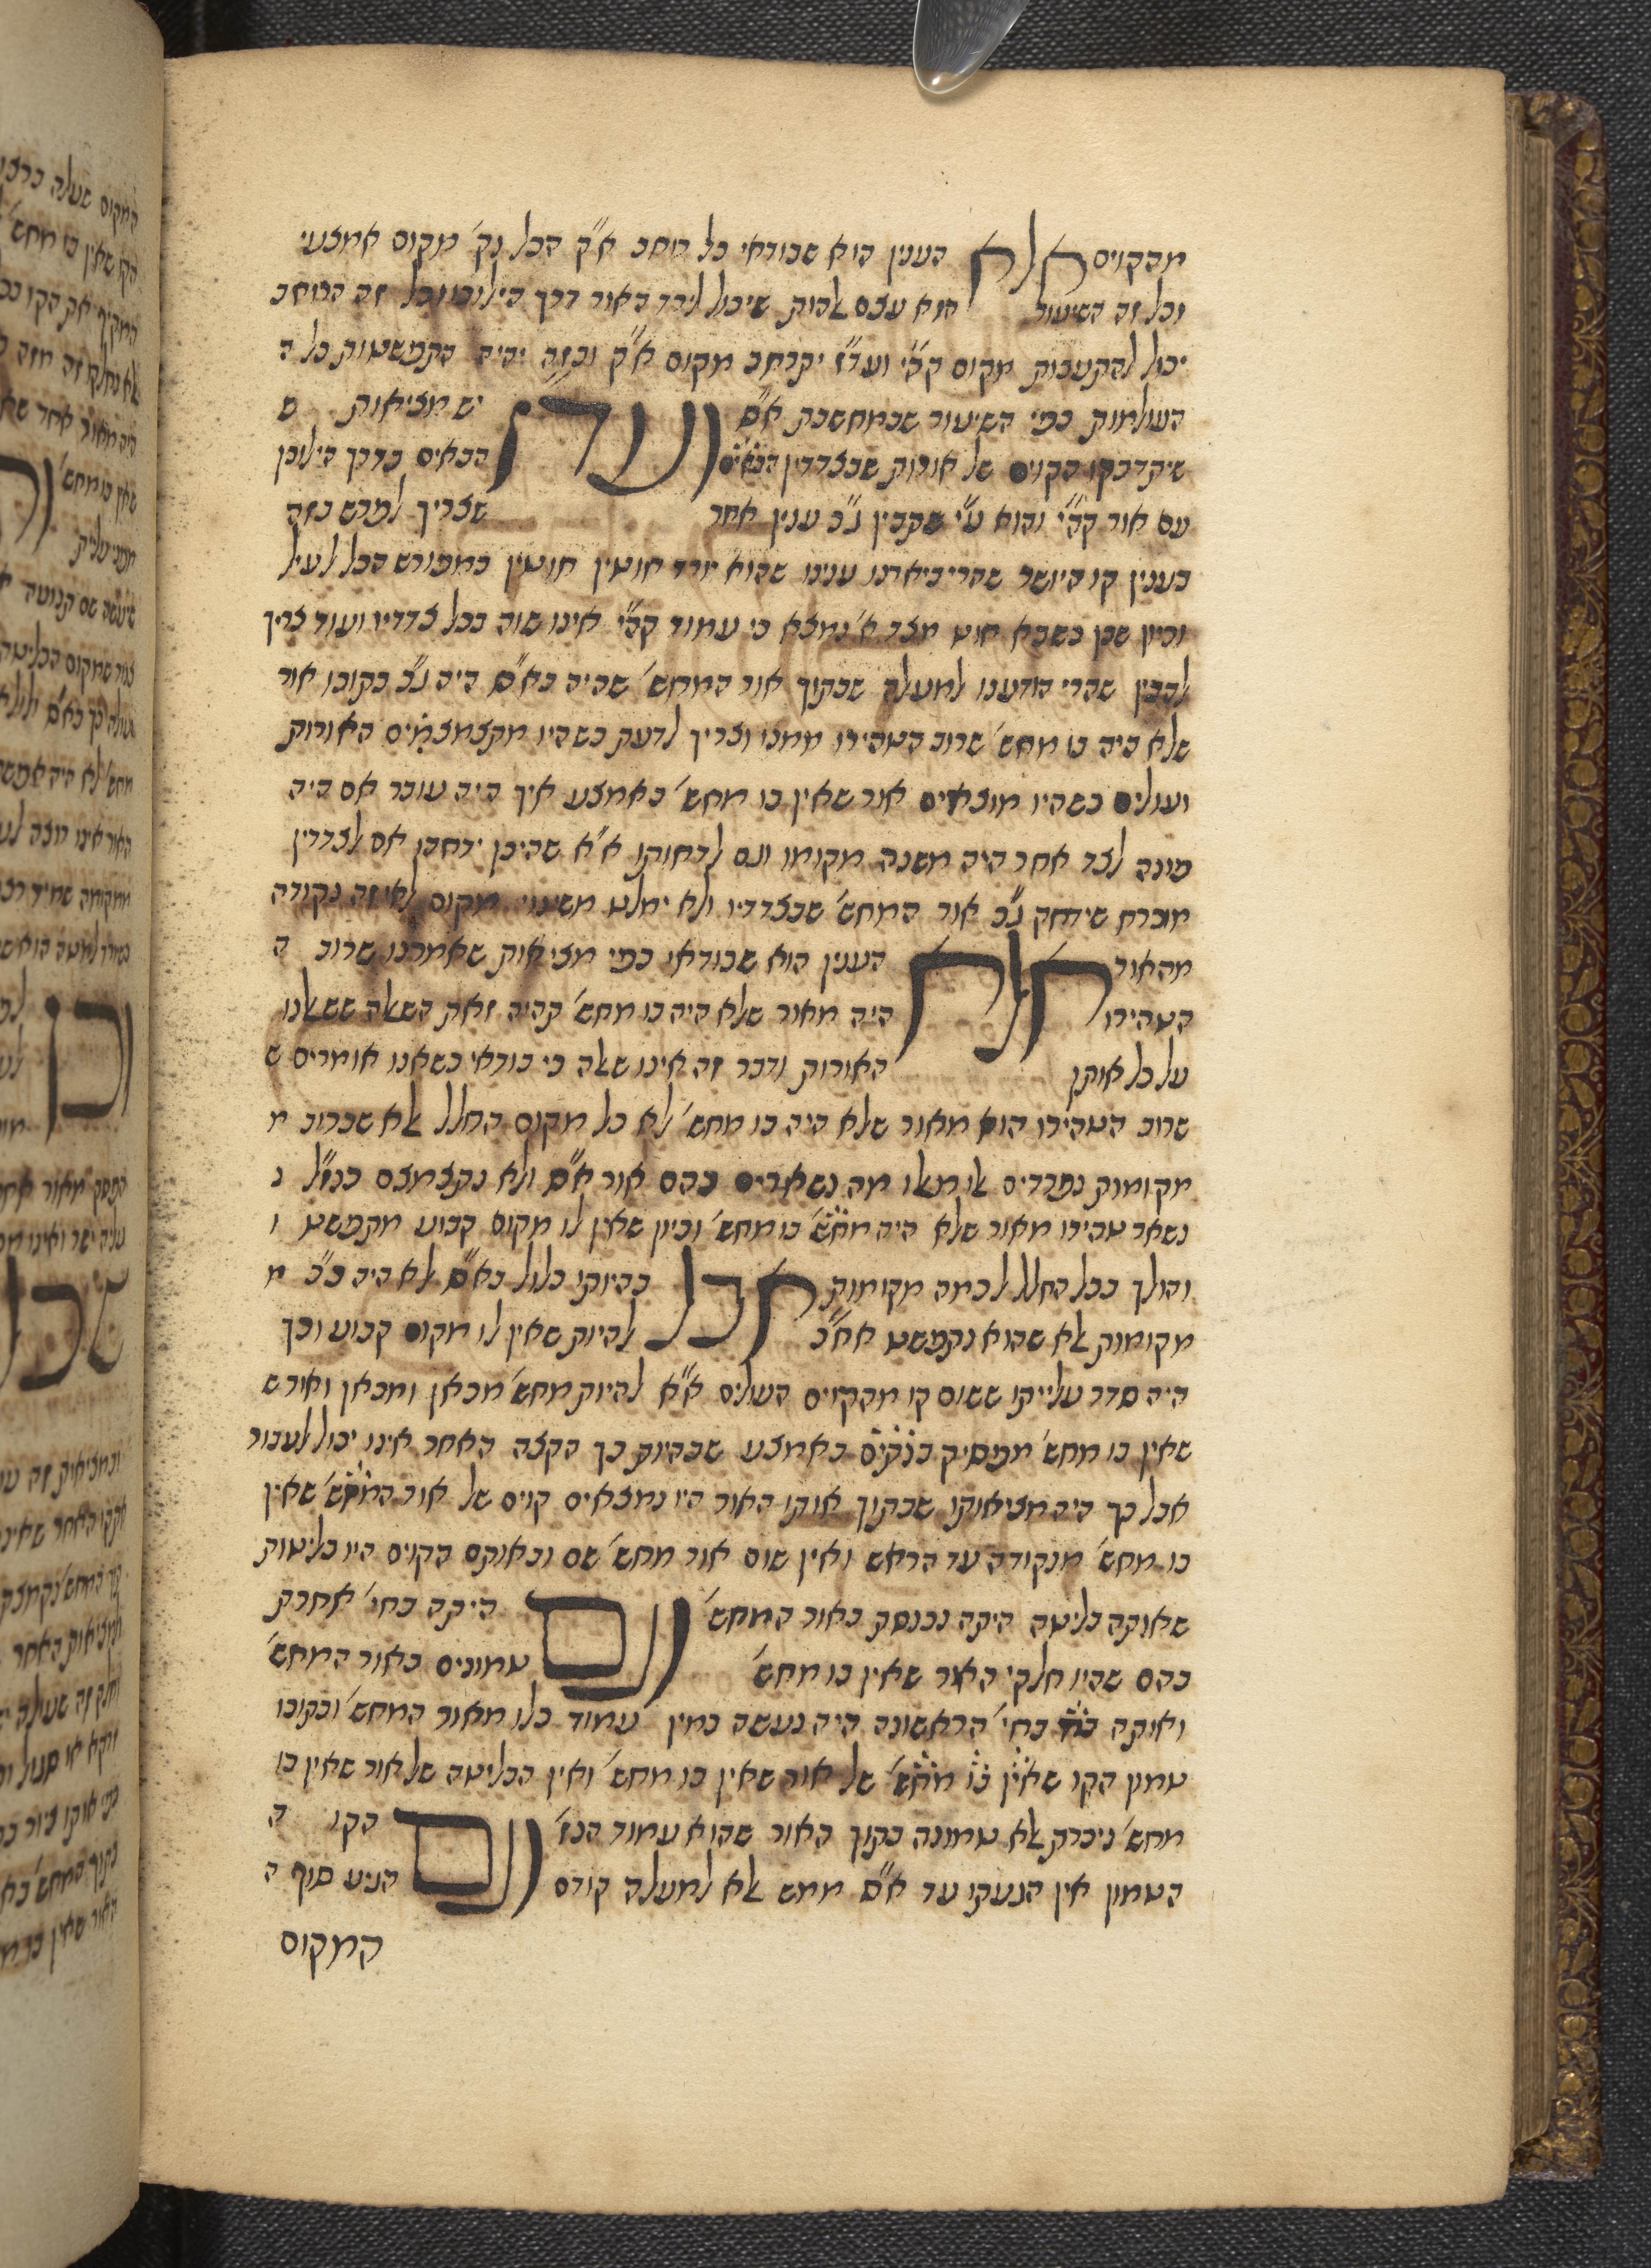 מהקוים אלא הענין הוא שבודאי כל רוחב א"ק הכל נק' מקום אמצעי
וכל זה השיעור הוא עצם להיות שיכול לירד האור דרך הילוכו וכל זה הרוחב
יכול להתעבות מקום קה"י ועד"ז יתרחב מקום א"ק ובזה יהיה התפשטות כל ה
העולמות כפי השיעור שבמחשבת א"ס ועדן יש מציאות ש
שיתדבקו הקוים של אורות שבצדדין הבאים הבאים בדרך הילוכן
עם אור קה"י והוא ע"י שתבין ג"כ ענין אחר שצריך לפרש בזה
בענין קו היושר שהרי ביארנו ענינו שהוא יורד חוטין חוטין כמפורש הכל לעיל
וכיון שכן כשבא חוט מצד א' נמצא כי עמוד קה"י אינו שוה בכל צדדיו ועוד צריך
להבין שהרי הודענו למעלה שבתוך אור המחש' שהיה בא"ס היה ג"כ בקובו אור
שלא היה בו מחש' שרוב הטהירו ממנו וצריך לדעת כשהיו מתצמצמים האורות
ועולים כשהיו מוצאים אור שאין בו מחש' באמצע איך היה עובר אם היה
פונה לצד אחר היה משנה מקומו וגם לדחותו א"א שהיכן ידחהו אם לצדדין
מוכרח שידחק ג"כ אור המחש' שבצדדיו ולא ימלט משינוי מקום לאיזה נקודה
מהאור אנא הענין הוא שבודאי כפי מציאות שאמרנו שרוב ה
הטהירו היה מאור שלא היה בו מחש' תהיה זאת השאלה ששאלנו
על כל אותן האורות ודבר זה אינו שאלה כי בודאי כשאנו אומרים ש
שרוב הטהירו הוא מאור שלא היה בו מחש' לא כל מקום החלל אלא שברוב מ
מקומות נפרדים אלו מאלו מה נשארים בהם אור א"ס ולא נתצמצם כנז"ל נ
נשאר טהירו מאור שלא היה מחש' בו מחש' וכיון שאין לו מקום קבוע מתפשט ו
והולך בכל החלל לכמה מקומות אבל בהיותו כלול בא"ס לא היה כ"כ מ
מקומות אלא שהוא נתפשט אח"כ להיות שאין לו מקום קבוע וכך
היה סדר עלייתו ששום קו מהקוים העולים א"א להיות מחש' מכאן ומכאן ואור ש
שאין בו מחש' מפסיק בנתים באמצע שבהיות כך הקצה האחר אינו יכול לעבור
אבל כך היה מציאותו שבתוך אותו האור היו נמצאים קוים של אור המחש' שאין
בו מחש' מנקודה עד הראש ואין שום אור מחש' שם ובאותם הקוים היו בליטות
שאותה בליטה היתה נכנסת באור המחש' וגם היתה בחי' אחרת
בהם שהיו חלקי האור שאין בו מחש' טמונים באור המחש'
ואותה בחי' בחי' הראשונה היה נעשה כמין עמוד כלו מאור המחש' ובקובו
טמון הקו שאין בו מחש' של אור שאין בו מחש' ואין הבליטה של אור שאין בו
מחש' ניכרת אלא טמונה בתוך האור שהוא עמוד הנז' וגם הקו ה
הטמון אין הגעתו עד א"ס ממש אלא למעלה קודם הגיע סוף ה
המקום